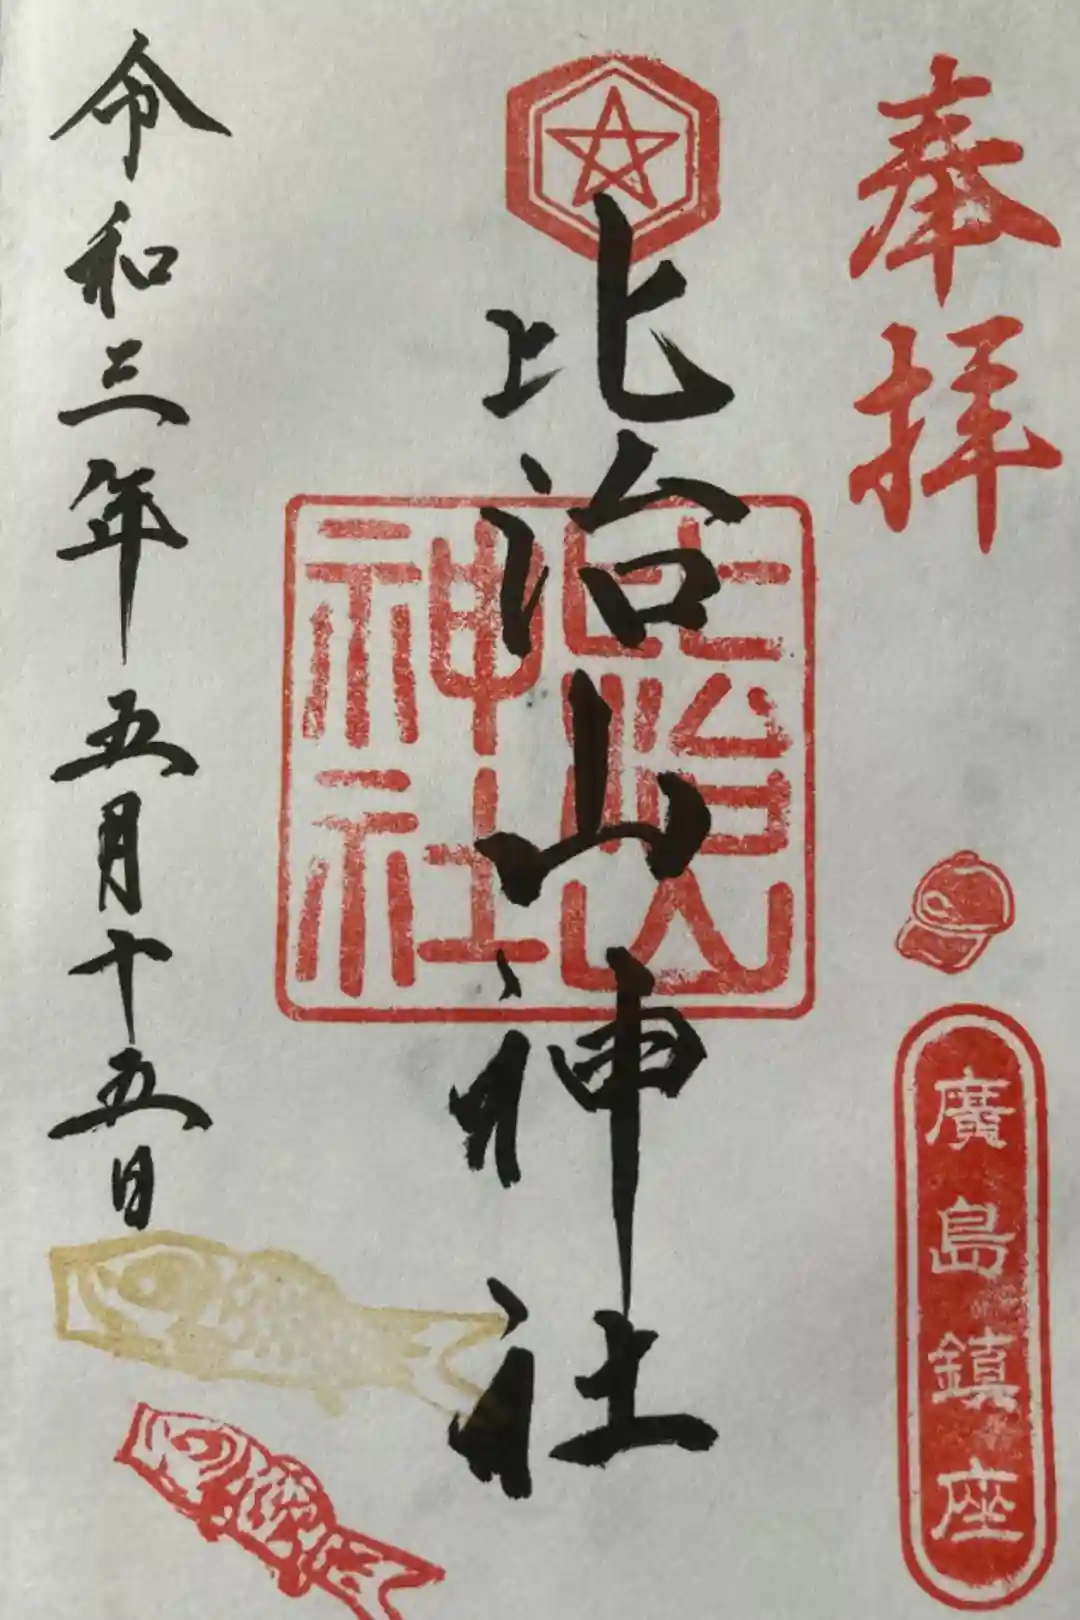 奉拝
廣島鎮座
比治山神社
比治山
神社
令和三年五月十五日